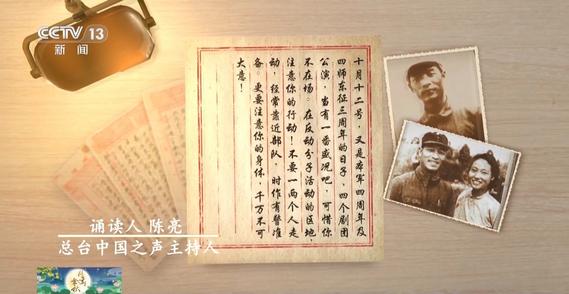 CCTV 13
新闻
十月十二号，又是本军四周年及
四师东征三周年的日子，四个剧团
公演，当有一番盛况吧，可惜你
不在场。在反动分子活动的区地，
注意你的行动！不要一两个人走
动，经常靠近部队，时作有警准
备。更要注意你的身体，千万不可
大意！
诵读人 陈亮
总台中国之声主持人